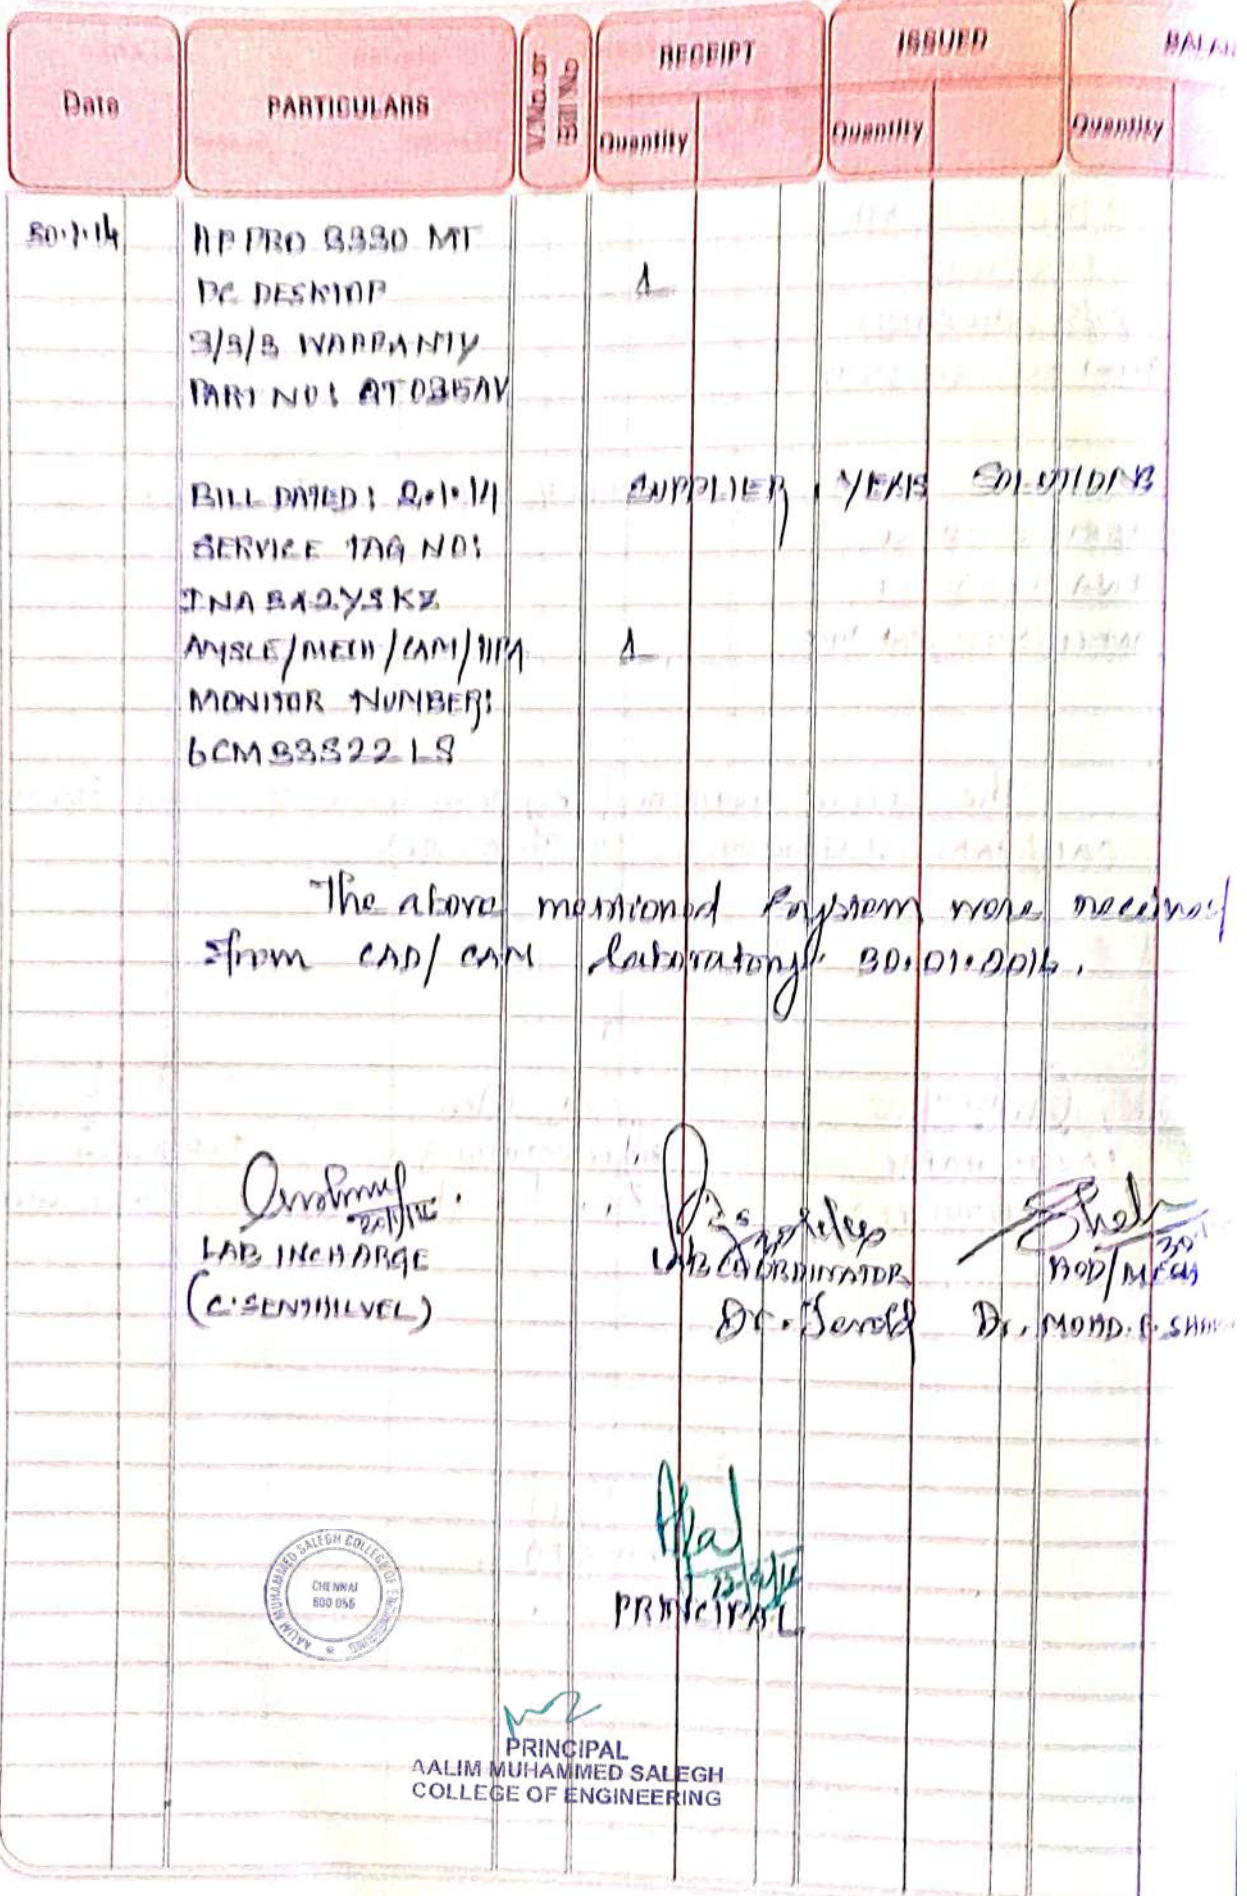 Date PARTICULARS V.No. or Bill No RECEIPT ISSUED
Quantity Quantity Quantity
30.1.14 HP PRO 3330 MT
PC DESKTOP 1
3/3/3 WARRANTY
PART NO: QT035AV
BILL DATED: 2.1.14 SUPPLIER: SOLUTIONS
SERVICE TAG NO:
AMSCE/MECH/CAM/HP1 1
MONITOR NUMBER:
6CM33322LS
The above mentioned system were received
from CAD/CAM laboratory.
LAB INCHARGE LAB COORDINATOR HOD/MECH
(C.SENTHILVEL) Dr. Jerold Dr. MOHD.
PRINCIPAL
AALIM MUHAMMED SALEGH COLLEGE OF ENGINEERING
CHENNAI
600 055
PRINCIPAL
AALIM MUHAMMED SALEGH
COLLEGE OF ENGINEERING